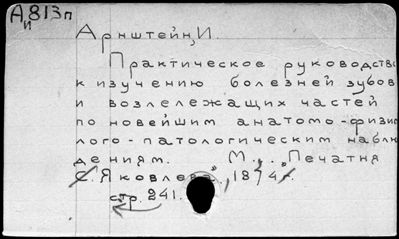 А,813п
И
Арнштейн, И.
Практическое руководство
к изучению болезней зубов
и возлележащих частей
по новейшим анатомо-физио
лого-патологическим наблю
дениям. М., „Печатня
С. Яковлева", 1874.
стр. 241.